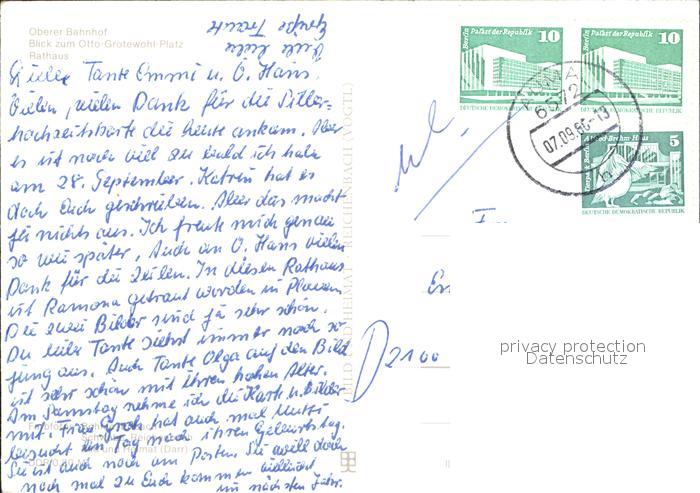 Oberer Bahnhof
Blick zum Otto-Grotewohl-Platz
Rathaus
Viele liebe
Grüße Traute
Liebe Tante Emmi u. O. Hans.
Vielen, vielen Dank für die Silber-
hochzeitskarte die heute ankam. Aber
es ist noch viel zu bald ich hab
am 28. September. Katrin hat es
doch Euch geschrieben. Aber das macht
ja nichts aus. Ich freute mich genau
so wie später. Auch an O. Hans vielen
Dank für die Zeilen. In diesem Rathaus
ist Ramona getraut worden in Plauen
Die zwei Bilder sind ja sehr schön.
Du liebe Tante siehst immer noch so
jung aus. Auch Tante Olga auf den Bild
ist sehr schön mit ihren hohen Alter.
Am Samstag nehme ich die Karte u. Bilder
mit. Frau Groh hat auch mal Mutti
besucht ein Tag nach ihren Geburtstag.
Sie ist auch noch am Posten. Sie will doch
noch mal zu Euch kommen vielleicht
im nächsten Jahr.
BILD UND HEIMAT REICHENBACH (VOGTL)
und Heimat (Darr)
Berlin Palast der Republik 10
DEUTSCHE DEMOKRATISCHE REPUBLIK
Berlin Palast der Republik 10
DEUTSCHE DEMOKRATISCHE REPUBLIK
Alfred-Brehm-Haus 5
DEUTSCHE DEMOKRATISCHE REPUBLIK
6572
07.09.86-13
h
D 2100
privacy protection
Datenschutz